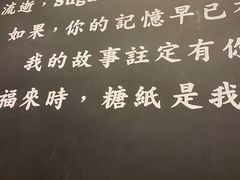 流逝，Suga
如果，你的記憶早已
我的故事註定有你
福來時，糖紙是我